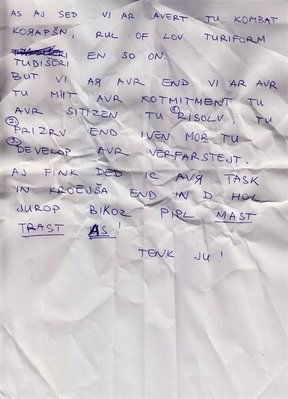 AS AJ SED VI AR AVERT TU KOMBAT
KORAPŠN, RUL OF LOV TURIFORM
EN SO ON.
TUDIŠERI
BUT VI AR AVR END VI AR AVR
TU MIIT AVR KOTMITMENT TU
AVR SITIZEN TU ① RISOLV, TU
② PRIZRV END IVEN MOR TU
③ DEVELOP AVR VERFARSTEJT.
AJ FINK DED IC AVR TASK
IN KROEJŠA END IN D HOL
JUROP BIKOZ PIPL MAST
TRAST AS!
TENK JU!